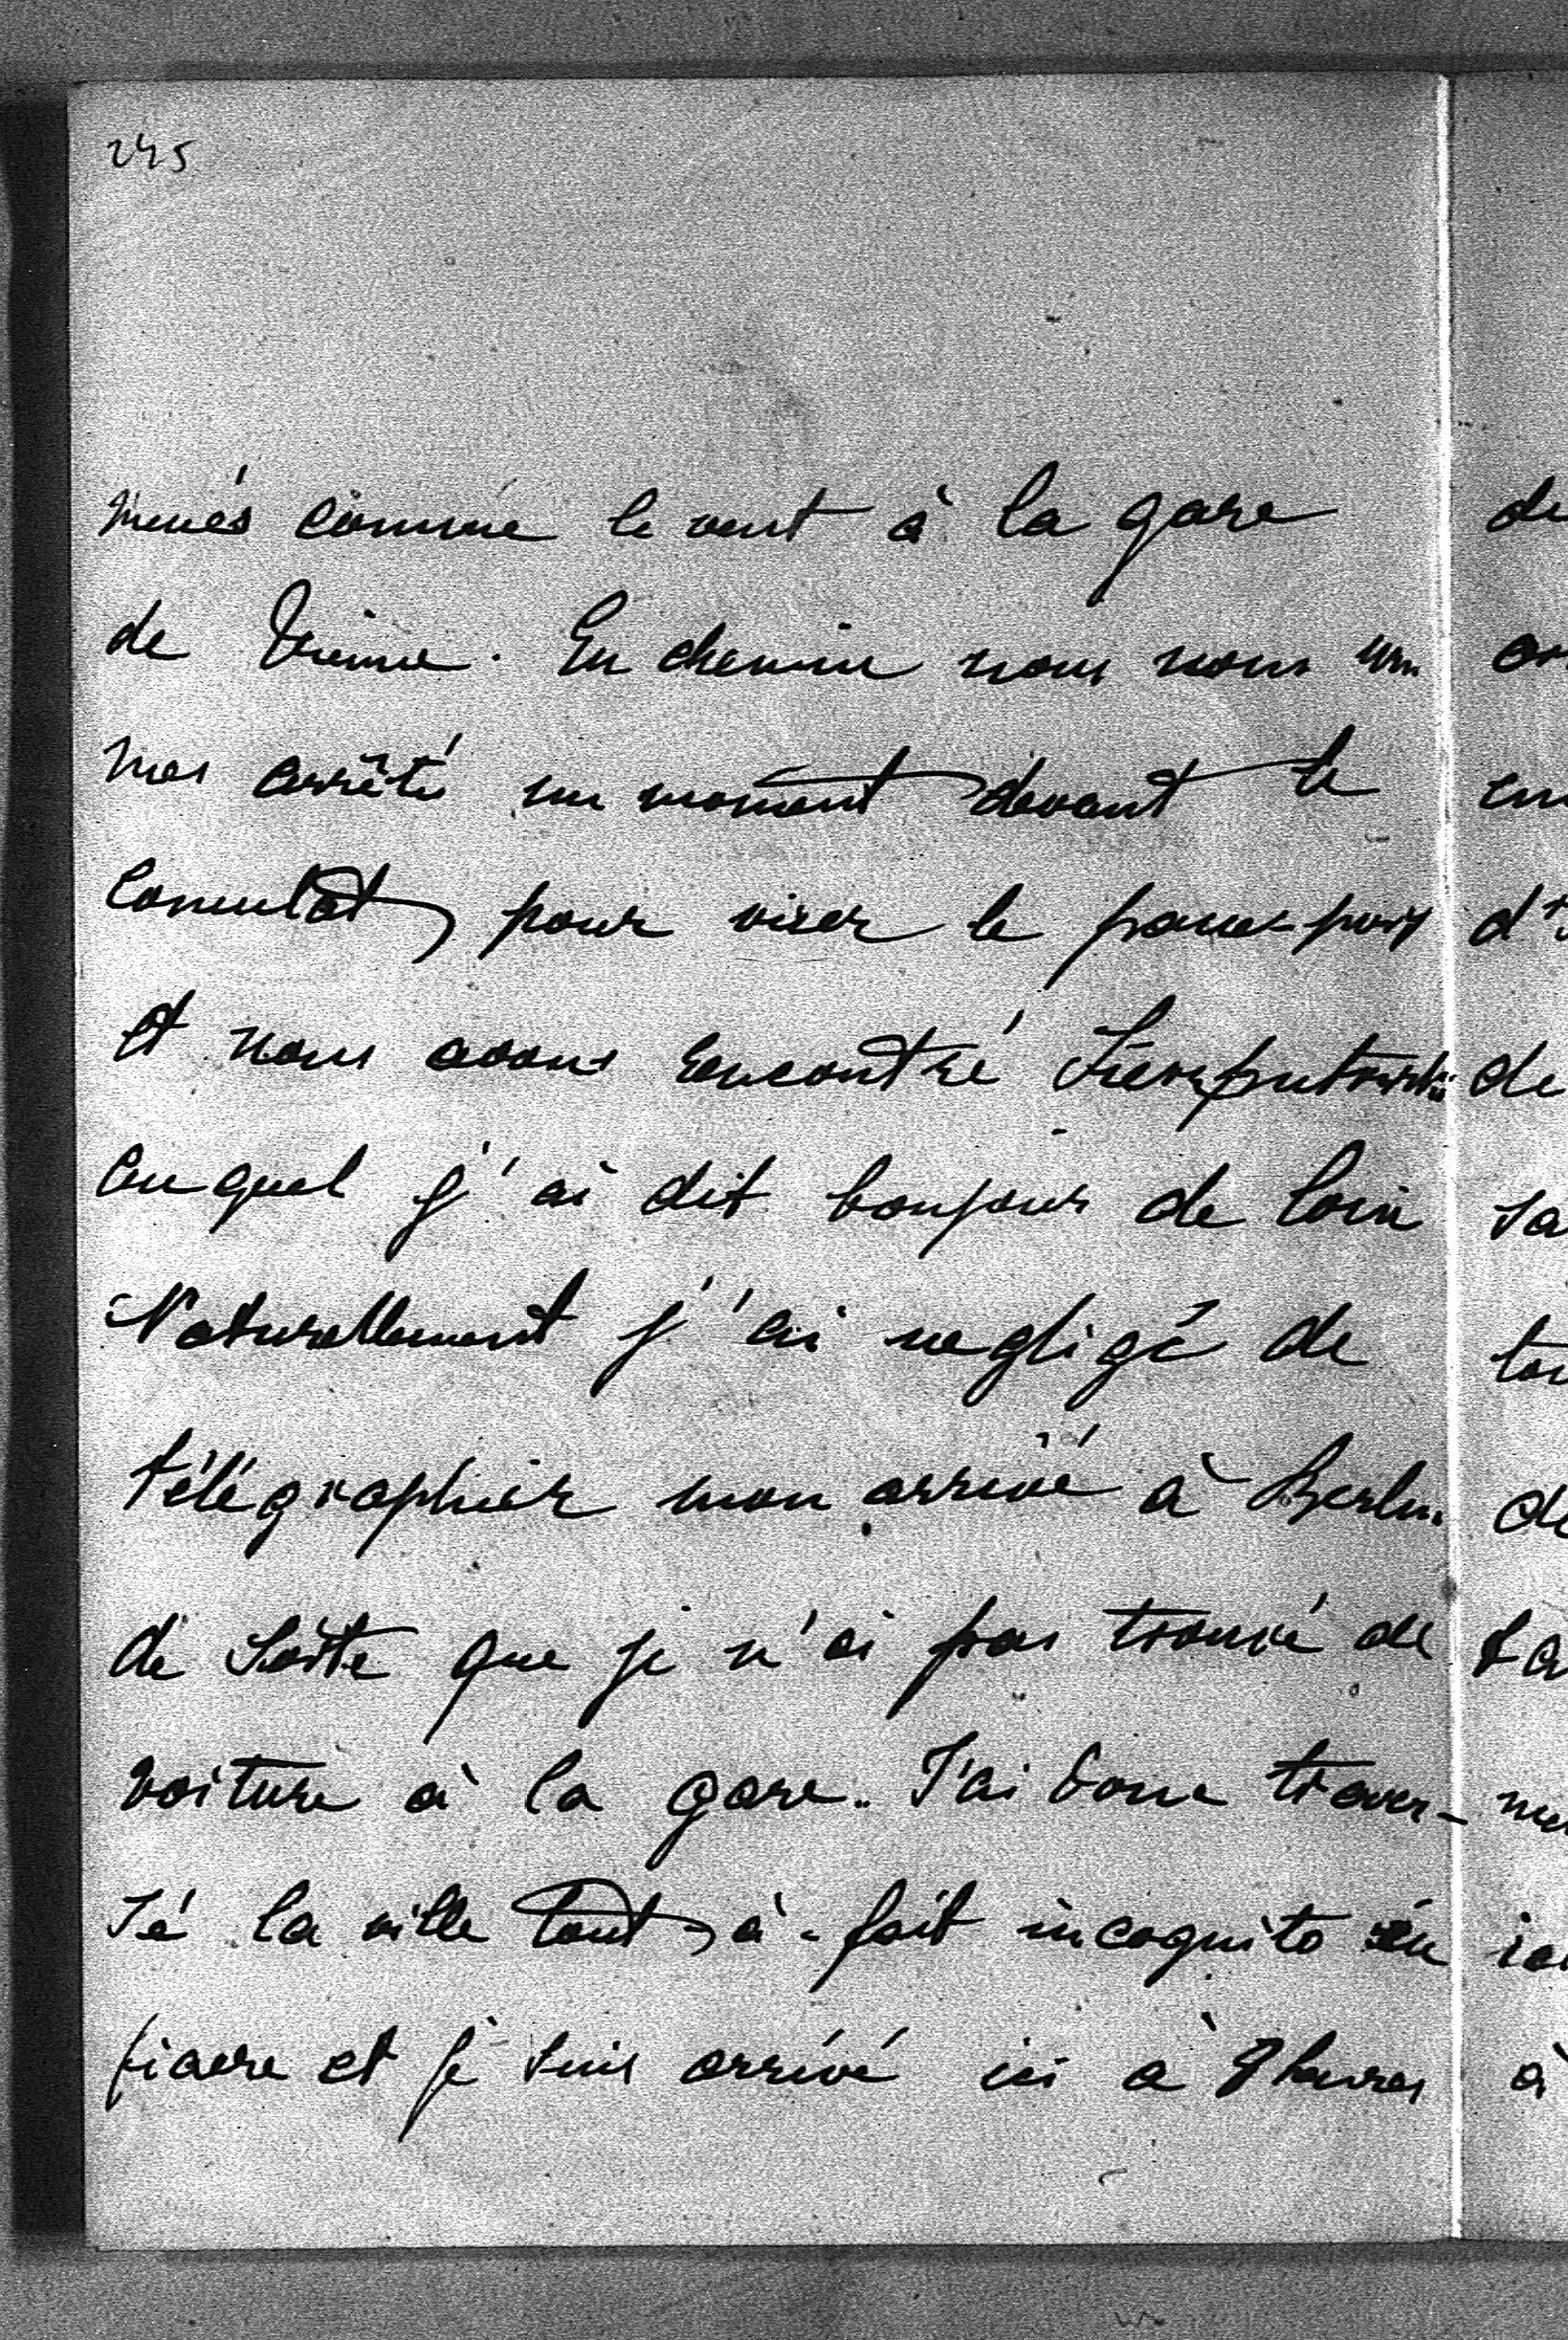 245
menés comme le vent à la gare
de Vienne. En chemin nous nous som
mes arrêté un moment devant le
Consulat, pour viser le passe-port
et nous avons rencontré
auquel j'ai dit bonjour de loin
Naturellement j'ai negligé de
télégraphier mon arrivé à Berlin
de sorte que je n'ai pas trouvé de
voiture à la gare. J'ai donc traver-
sé la ville tout, à-fait incognito en
fiacre et je suis arrivé ici à 8 heures